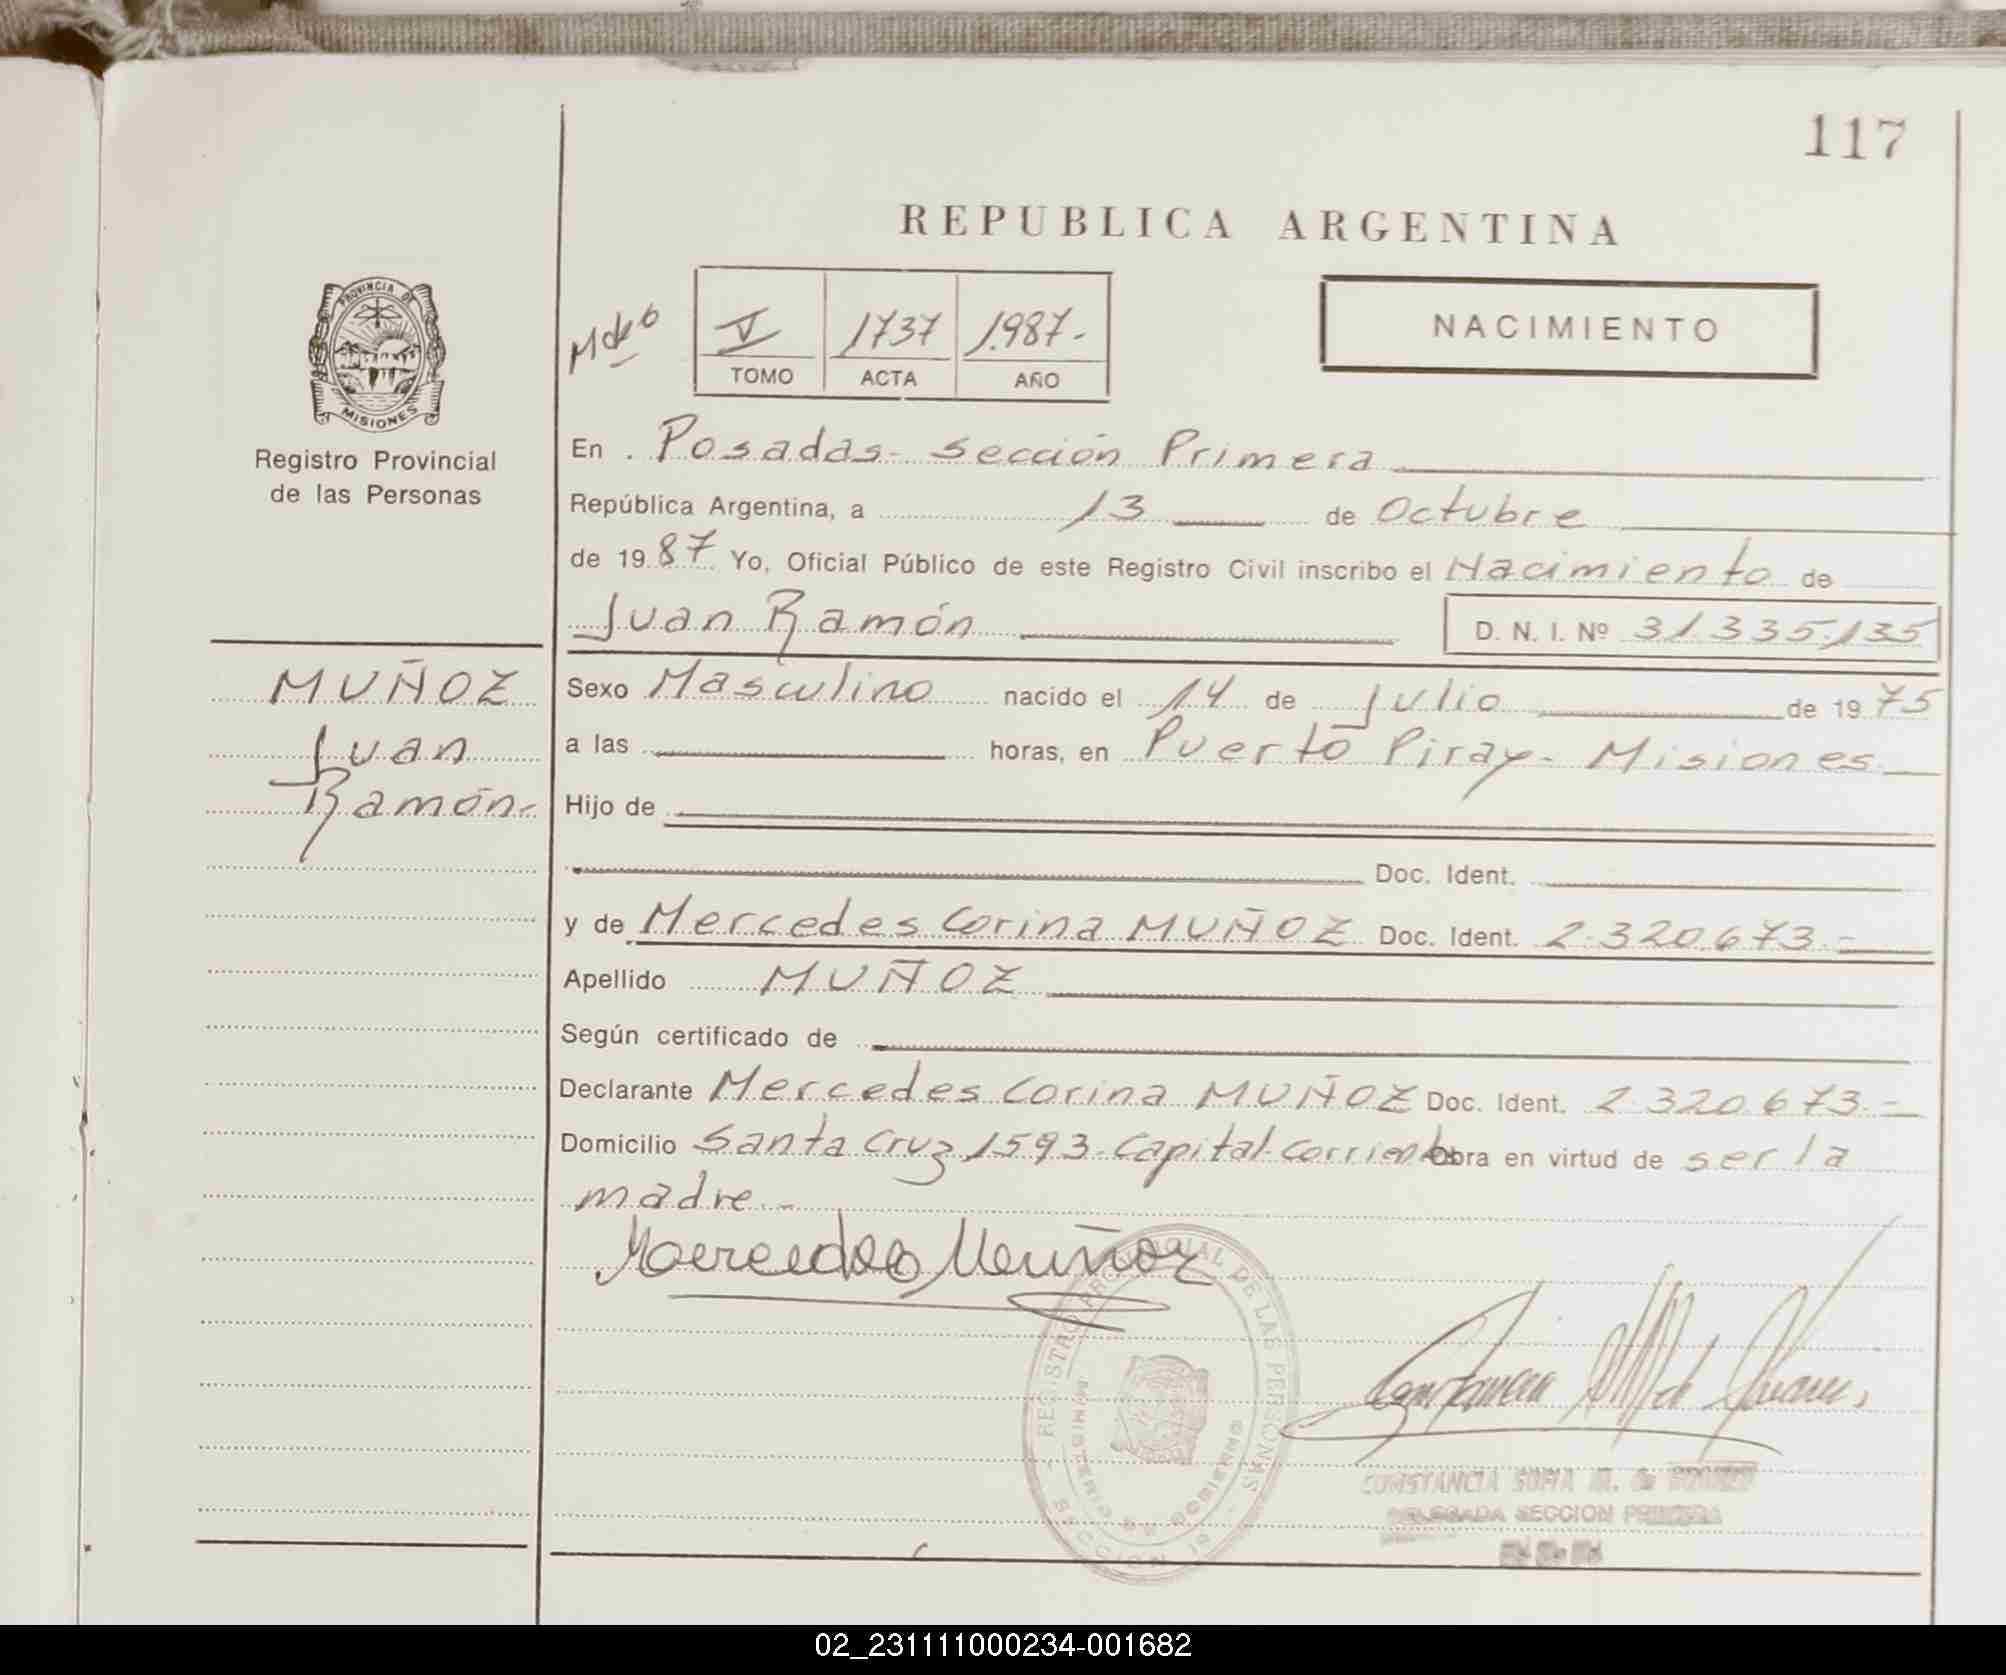 117
REPUBLICA ARGENTINA
NACIMIENTO
V 1737 1.987.-
TOMO ACTA AÑO
PROVINCIA DE
MISIONES
Registro Provincial
de las Personas
MUÑOZ
Juan
Ramón.-
En Posadas- Sección Primera
República Argentina, a 13 de Octubre
de 1987 Yo, Oficial Público de este Registro Civil inscribo el Nacimiento de
Juan Ramón D. N. I. Nº 31.335.135
Sexo Masculino nacido el 14 de Julio de 1975
a las horas, en Puerto Piray- Misiones
Hijo de
Doc. Ident.
y de Mercedes Corina MUÑOZ Doc. Ident. 2.320.673.-
Apellido MUÑOZ
Según certificado de
Declarante Mercedes Corina MUÑOZ Doc. Ident. 2.320.673.-
Domicilio Santa Cruz 1593-Capital-Corrientes Obra en virtud de ser la
madre.-
Mercedes Muñoz
REGISTRO PROVINCIAL DE LAS PERSONAS
MINISTERIO DE GOBIERNO
SECCION 1º
CONSTANCIA SOFIA M. de
DELEGADA SECCION PRIMERA
02_231111000234-001682